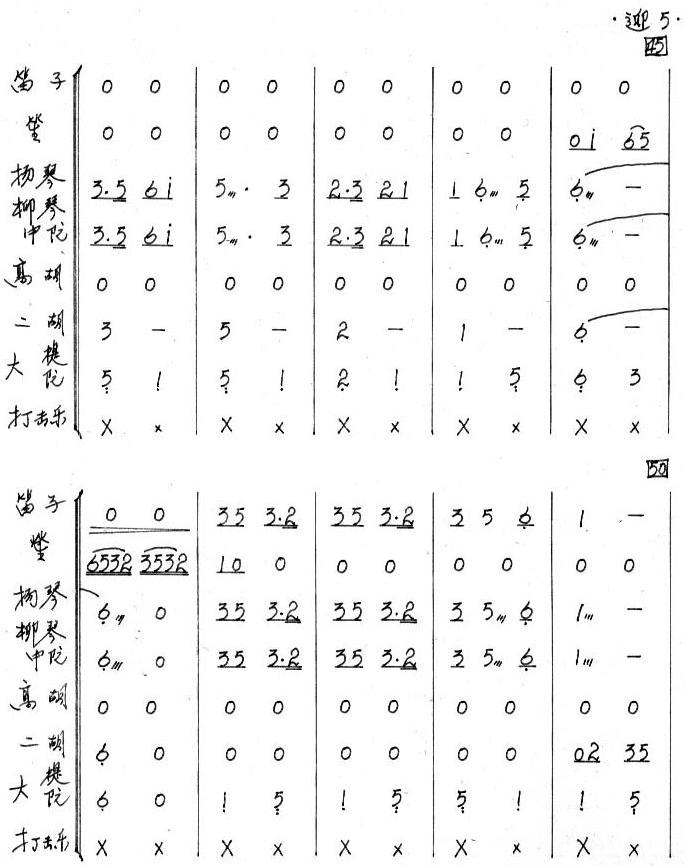 ·迎 5·
45
笛子 | 0 0 | 0 0 | 0 0 | 0 0 | 0 0 |
笙 | 0 0 | 0 0 | 0 0 | 0 0 | 0i 65 |
扬琴 | 3·5 6i | 5〃 · 3 | 2·3 21 | 1 6̣〃 5̣ | 6̣〃 — |
柳琴
中阮 | 3·5 6i | 5〃 · 3 | 2·3 21 | 1 6̣〃 5̣ | 6̣〃 — |
高胡 | 0 0 | 0 0 | 0 0 | 0 0 | 0 0 |
二胡 | 3 — | 5 — | 2 — | 1 — | 6̣ — |
大提
阮 | 5̣ 1̣ | 5̣ 1̣ | 2̣ 1̣ | 1̣ 5̣ | 6̣ 3 |
打击乐 | X x | X x | X x | X x | X x |
50
笛子 | 0 0 | 35 3·2 | 35 3·2 | 3 5 6̣ | 1 — |
笙 | 6532 3532 | 10 0 | 0 0 | 0 0 | 0 0 |
扬琴 | 6̣〃 0 | 35 3·2 | 35 3·2 | 3 5〃 6̣ | 1〃 — |
柳琴
中阮 | 6̣〃 0 | 35 3·2 | 35 3·2 | 3 5〃 6̣ | 1〃 — |
高胡 | 0 0 | 0 0 | 0 0 | 0 0 | 0 0 |
二胡 | 6̣ 0 | 0 0 | 0 0 | 0 0 | 02 35 |
大提
阮 | 6̣ 0 | 1̣ 5̣ | 1̣ 5̣ | 5̣ 1̣ | 1̣ 5̣ |
打击乐 | X x | X x | X x | X x | X x |